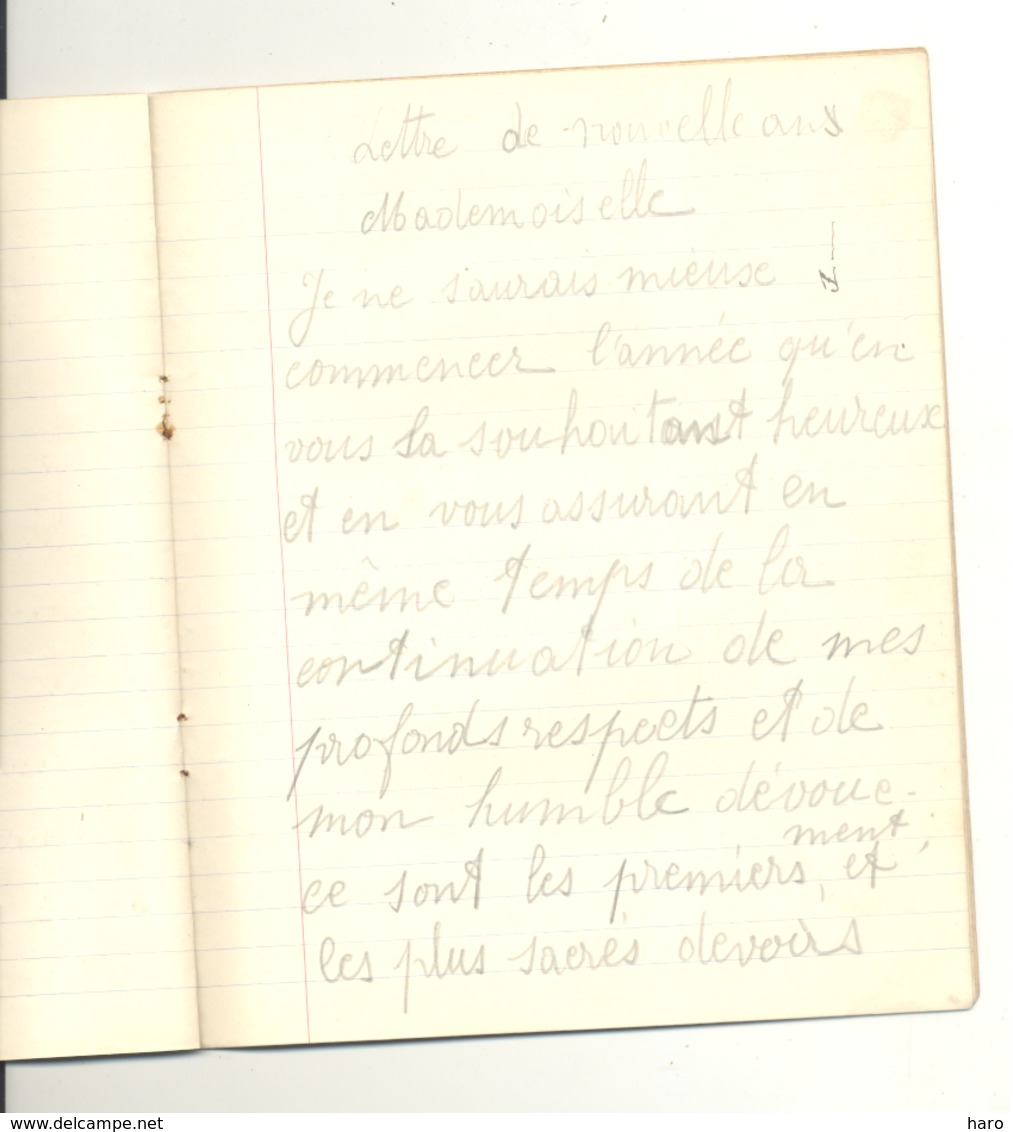 Lettre de nouvelle ans
Mademoiselle
Je ne saurais mieuse
commencer l'année qu'en
vous la souhoutant heureuse
et en vous assurant en
même temps de la
continuation de mes
profonds respects et de
mon humble dévoue-
ment;
ce sont les premiers, et
les plus sacrés devoirs
www.delcampe.net
haro